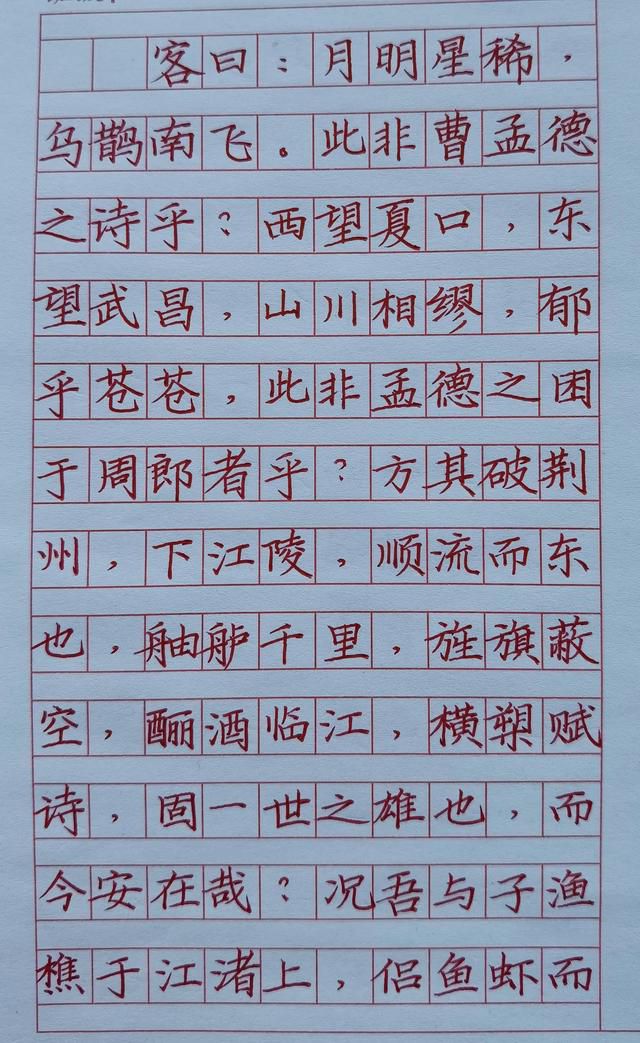 客曰：月明星稀，
乌鹊南飞。此非曹孟德
之诗乎？西望夏口，东
望武昌，山川相缪，郁
乎苍苍，此非孟德之困
于周郎者乎？方其破荆
州，下江陵，顺流而东
也，舳舻千里，旌旗蔽
空，酾酒临江，横槊赋
诗，固一世之雄也，而
今安在哉？况吾与子渔
樵于江渚上，侣鱼虾而